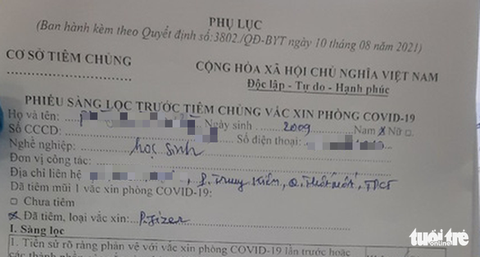 PHỤ LỤC
(Ban hành kèm theo Quyết định số:3802./QĐ-BYT ngày 10 tháng 08 năm 2021)
CƠ SỞ TIÊM CHỦNG
CỘNG HÒA XÃ HỘI CHỦ NGHĨA VIỆT NAM
Độc lập - Tự do - Hạnh phúc
PHIẾU SÀNG LỌC TRƯỚC TIÊM CHỦNG VẮC XIN PHÒNG COVID-19
Họ và tên: Ngày sinh 2009 Nam Nữ □
Số CCCD: Số điện thoại:
Nghề nghiệp: học sinh
Đơn vị công tác:
Địa chỉ liên hệ P. Trung Kiên, Q. Thốt Nốt, TPCT
Đã tiêm mũi 1 vắc xin phòng COVID-19:
□ Chưa tiêm
Đã tiêm, loại vắc xin: Pfizer
I. Sàng lọc
1. Tiền sử rõ ràng phản vệ với vắc xin phòng COVID-19 lần trước hoặc
tuổi trẻ
online